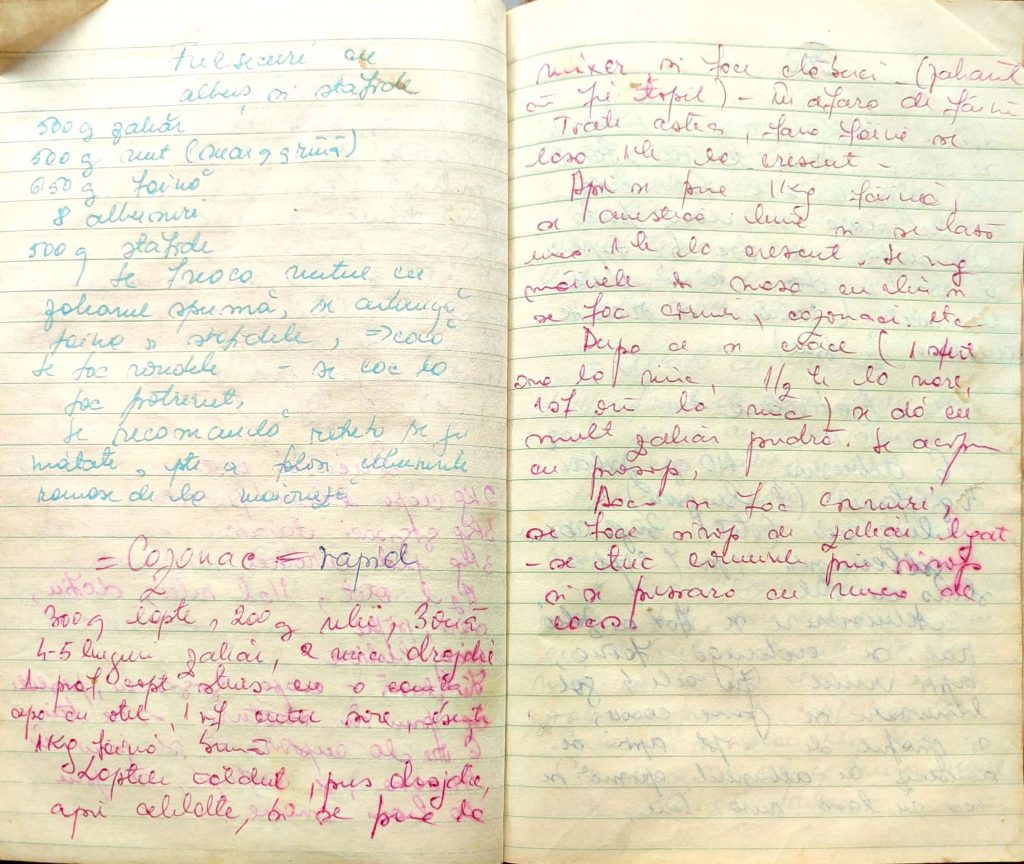 Fursecuri cu
albuș și stafide
500 g zahăr
500 g unt (mar g grină)
650 g faină
8 albușuri
500 g stafide
Se freacă untul cu
zaharul spumă, se adaugă
faina, stafidele, => cocă
Se fac rondele - se coc la
foc potrivit,
Se recomandă rețeta se fie
a folosi albusurile
ramase de la maioneză
= Cozonac = rapid
300 g lapte, 200 g ulei, 3 ouă
4-5 linguri zahăr, 2 drojdie
1 praf copt stins cu o
apa cu otet, 1
1 Kg faină bună
Laptele căldut, pus drojdie,
apoi celelalte, si se pune la
mixer si face clăbuci - (zaharul
să fie topit) - în afara de făină
Toate astea, fara faină se
lasa 1 h la crescut -
Apoi se pune 1 Kg făină,
se amestecă bine si se lasă
1 h la crescut. Se ung
mâinile si masa cu ulei si
se fac cornuri, cozonaci. etc
Dupa ce se coace (1 sfert
ora la mic, 1/2 h la mare,
la mică) se dă cu
mult zahăr pudră. Se acop
cu prosop,
Daca se fac cornuri,
se face sirop de zahăr legat
- se trec cornurile prin sirop
si se presara cu nuca de
cocos.